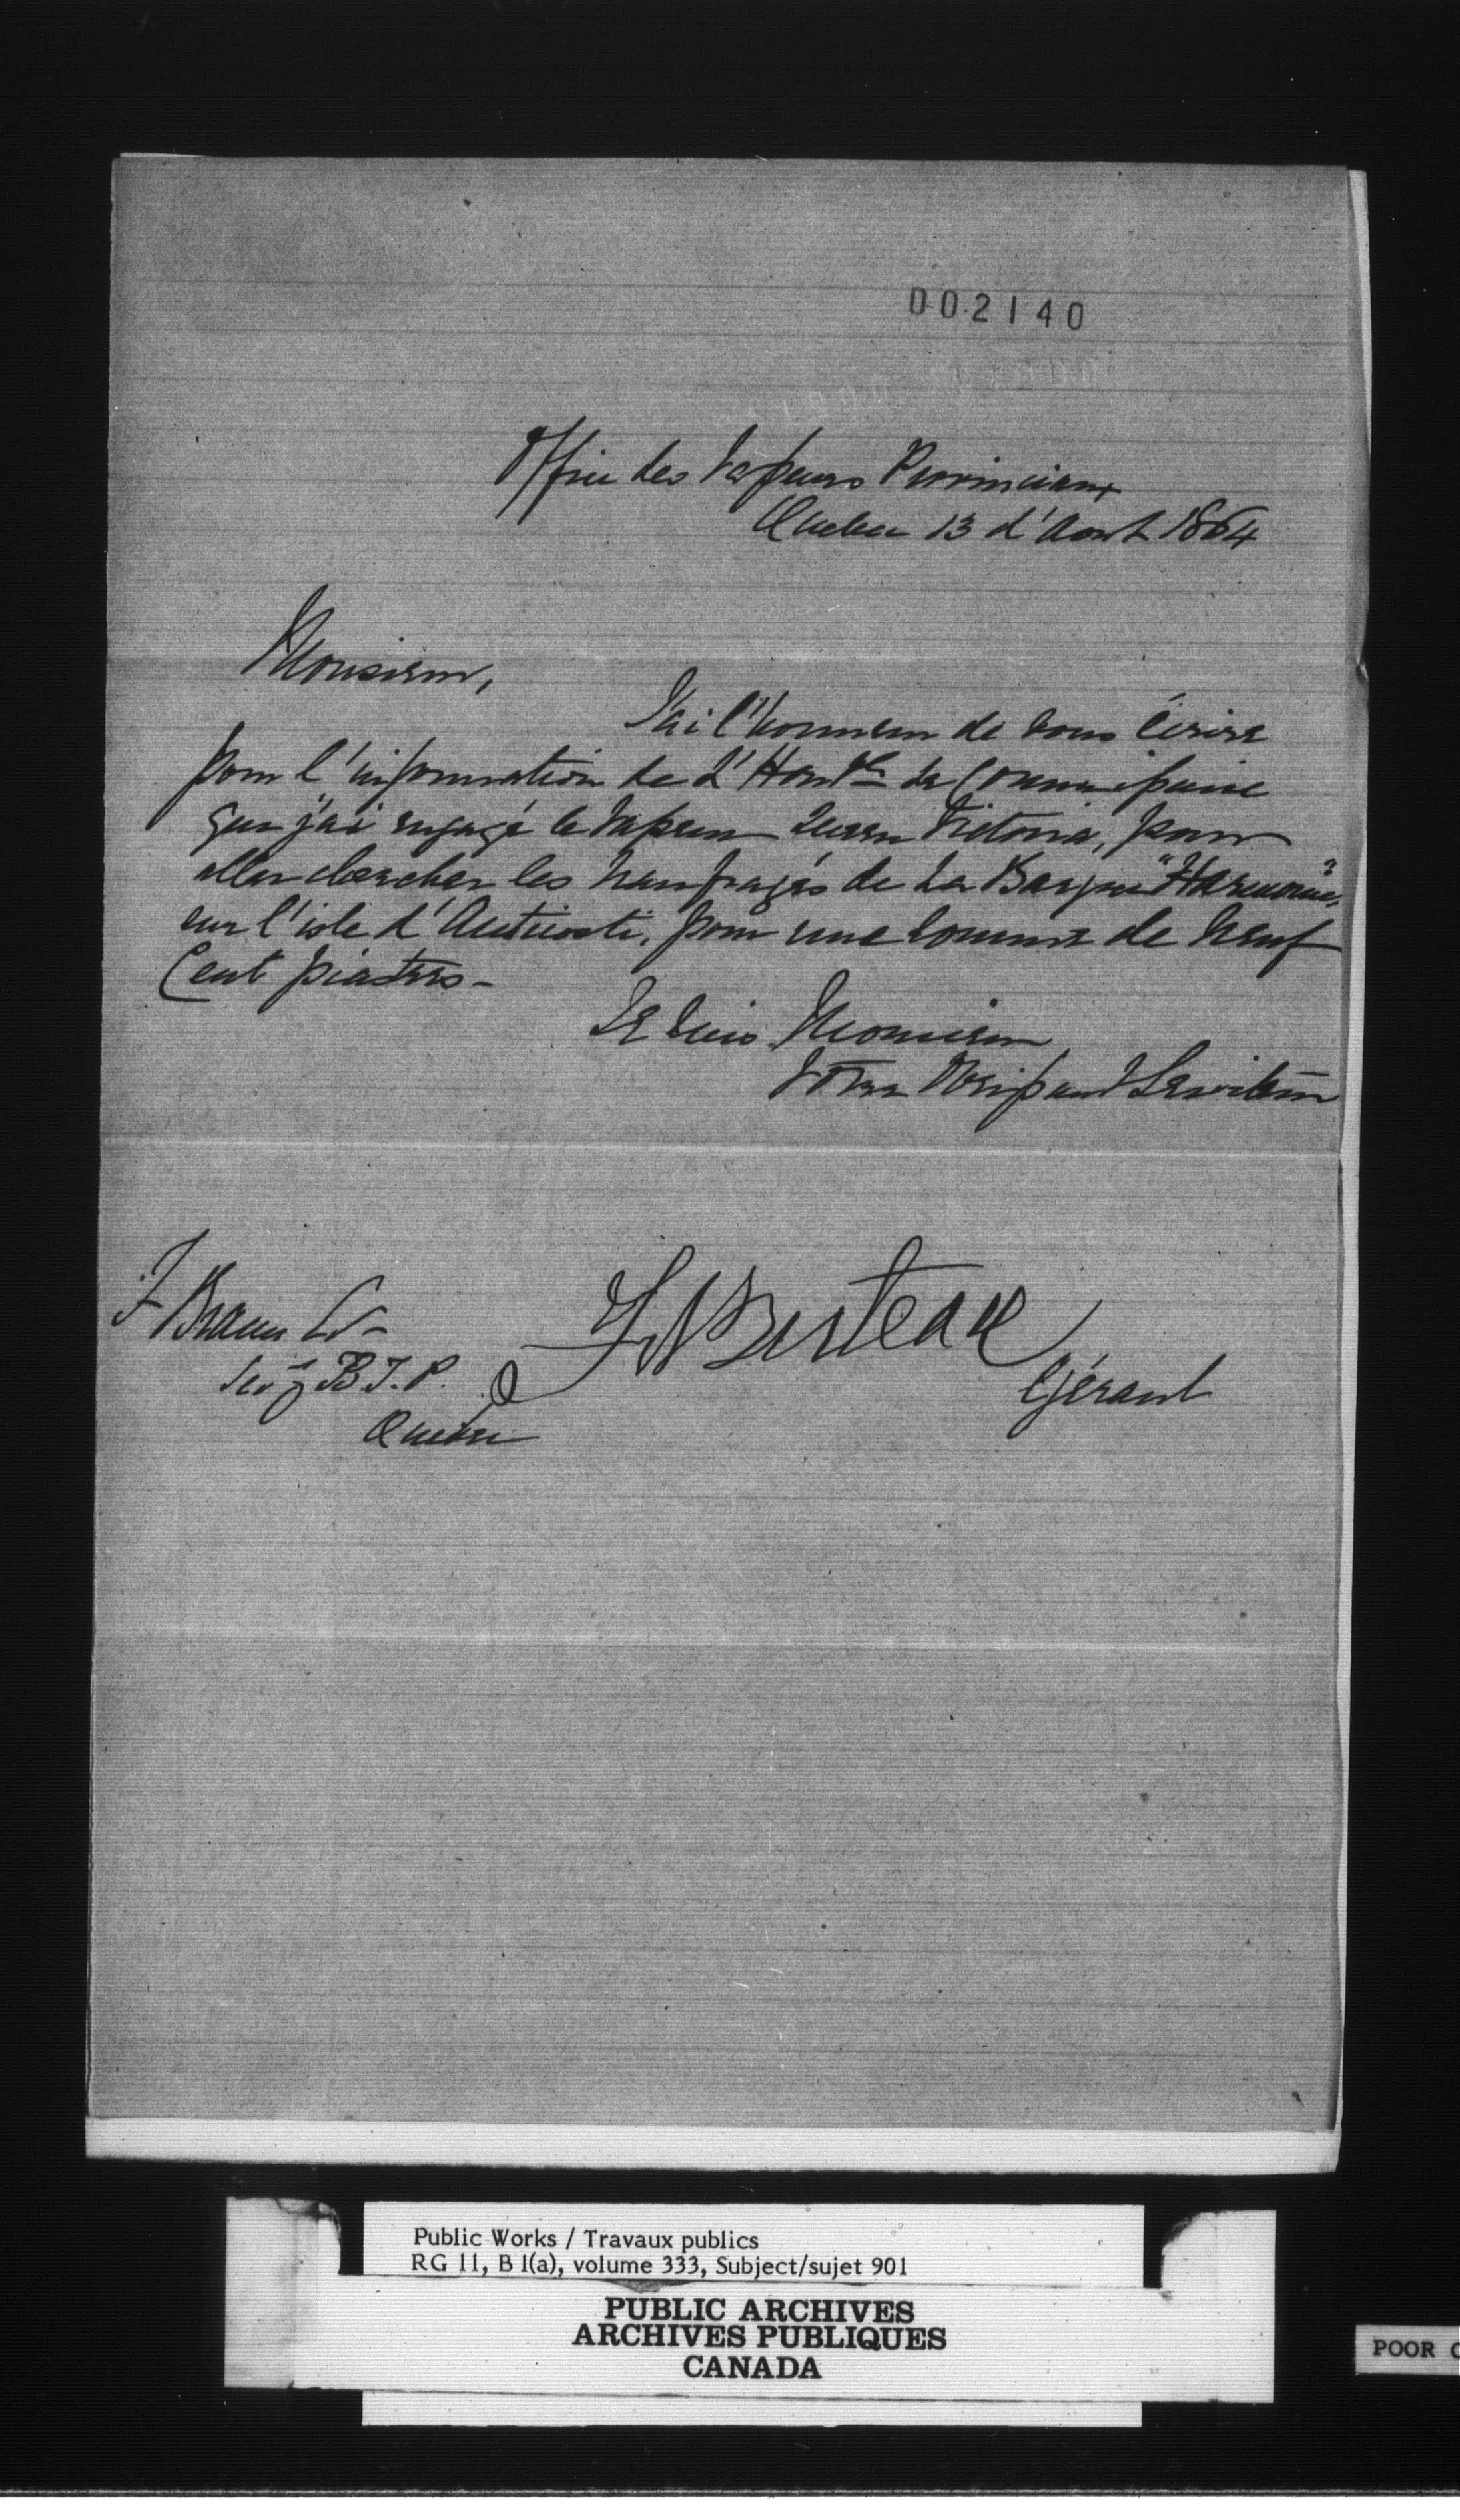 002140
Office des Vapeurs Provinciaux
Quebec 13 d'Aout 1864
Monsieur,
J'ai l'honneur de vous écrire
pour l'information de L'Honble le Commissaire
que j'ai engagé le Vapeur Queen Victoria, pour
aller chercher les naufragés de La Barque "Harmonie"
sur l'isle d'Anticosti, pour une somme de neuf
Cent piastres -
Je suis Monsieur
Votre Obeissant Serviteur
F Braun
B. T. P.
Quebec
Buteau
Gérant
Public Works / Travaux publics
RG 11, B 1(a), volume 333, Subject/sujet 901
PUBLIC ARCHIVES
ARCHIVES PUBLIQUES
CANADA
POOR